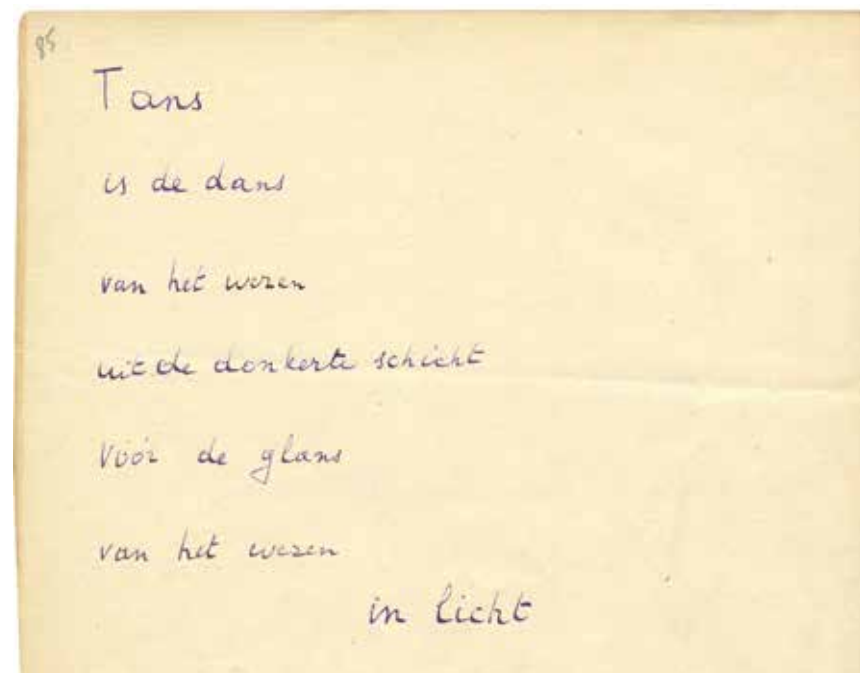 85
Tans
is de dans
van het wezen
uit de donkerte schicht
vóór de glans
van het wezen
in licht